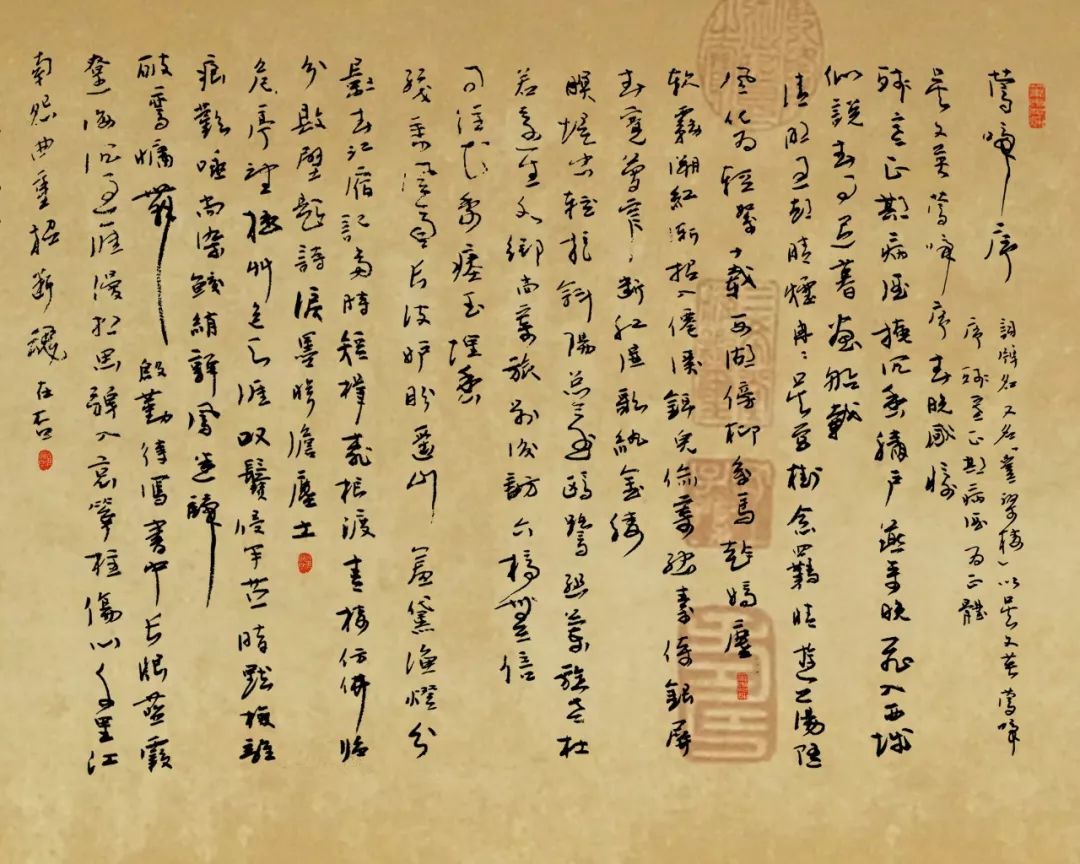 鶯啼序
詞牌名 又名「豐樂樓」以吳文英鶯啼
序 殘寒正欺病酒 為正體
吳文英 鶯啼序 春晚感懷
殘寒正欺病酒掩沉香繡戶燕來晚飛入西城
似說春事遲暮畫船載
清明過却晴煙冉冉吳宮樹念羈情遊蕩隨
風化為輕絮十載西湖傍柳系馬趁嬌塵
軟霧溯紅漸招入僊溪錦兒偷寄幽素倚銀屏
春寬夢窄斷紅濕歌紈金縷
暝堤空輕把斜陽總還鷗鷺幽蘭旋老杜
若還生水鄉尚寄旅別後訪六橋無信
事往花委瘞玉埋香
幾番風雨長波妒盼遙山 羞黛漁燈分
影春江宿記當時短楫桃根渡青樓仿佛臨
分敗壁題詩淚墨慘澹塵土
危亭望極艸色天涯叹鬢侵半苎暗點檢離
痕歡唾尚染鮫綃嚲鳳迷歸
破鸞慵舞 殷勤待寫書中長恨藍霞
遼海沉過雁漫相思彈入哀箏柱傷心千里江
南怨曲重招斷魂在否